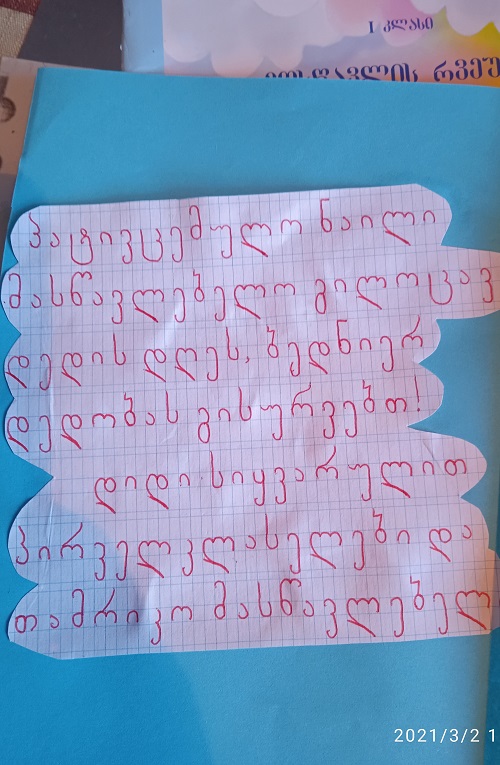 I კლასი
პატივცემულო ნაილი
მასწავლებელო გილოცავ
დედის დღეს, ბედნიერ
დედობას გისურვებთ!
დიდი სიყვარულით
პირველკლასელები და
თამრიკო მასწავლებელ
2021/3/2 1